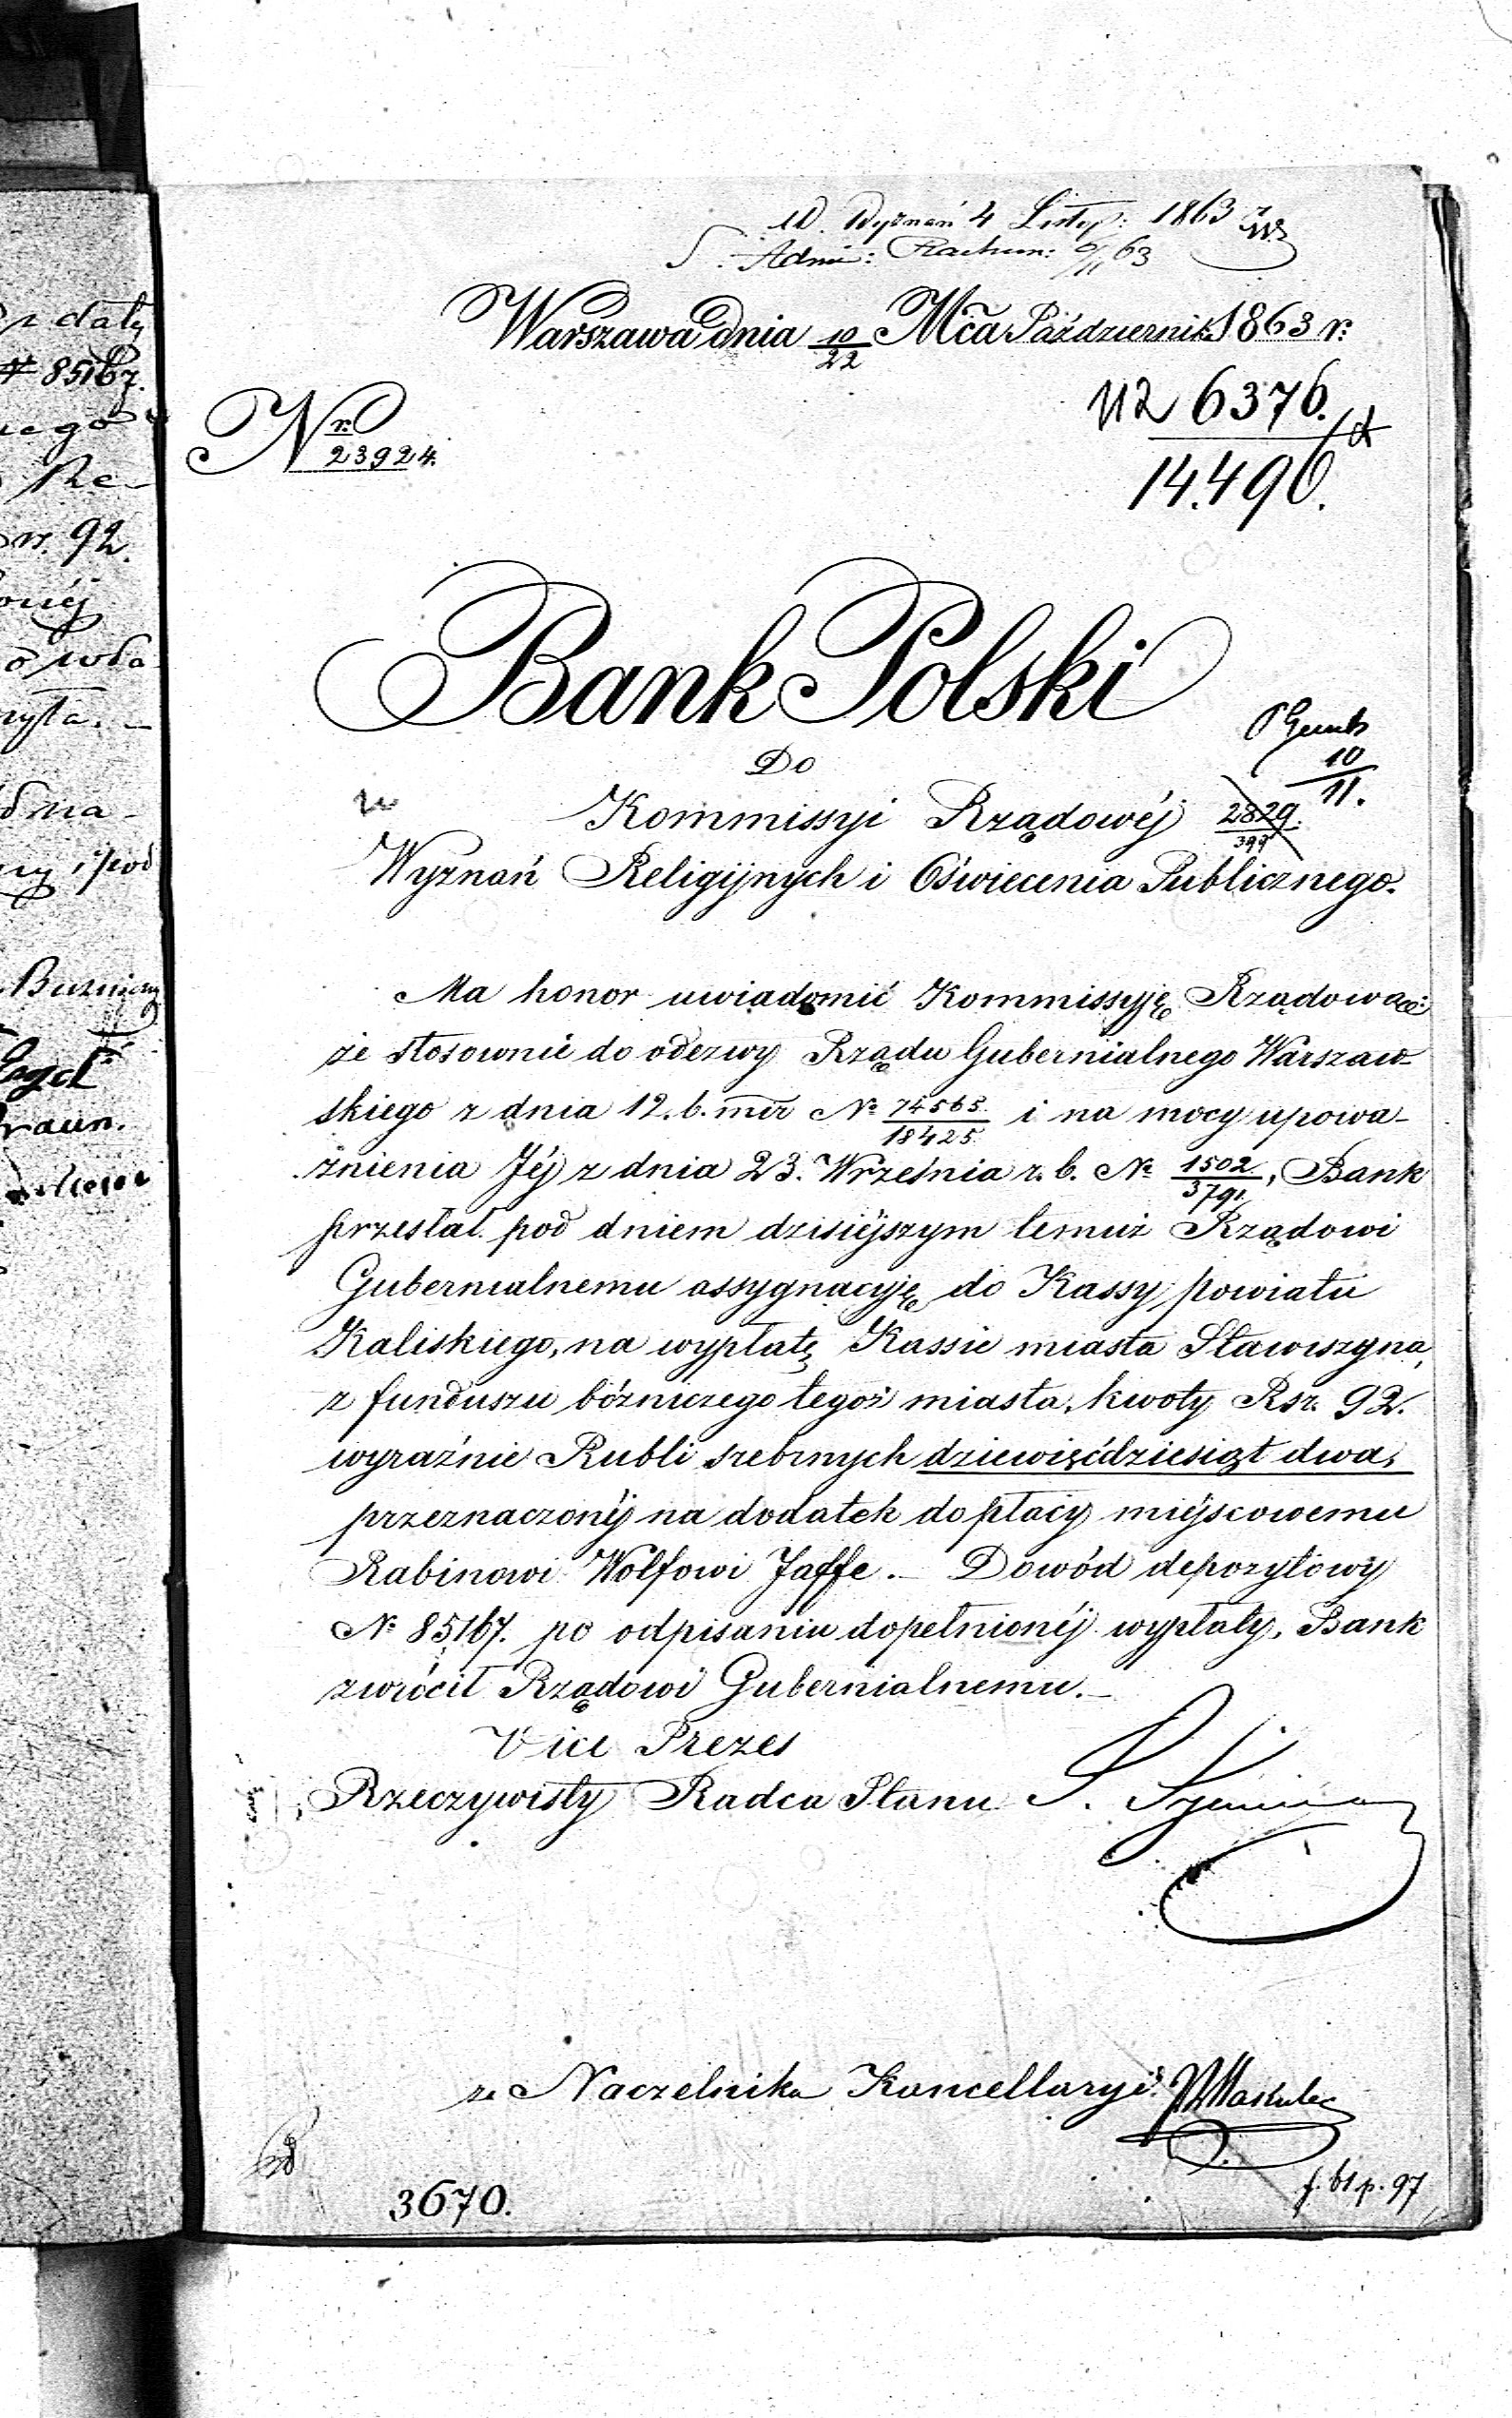 r daty
# 85167.
nego
Re-
sr. 92.
onéj
o wła-
ryta. -
dnia
ny i pod
W. Wyznań 4 Listop: 1863 r
S. Admi: Rachun: 9/11 63
Warszawa dnia 10/22 Mca Październik. 1863 r:
Nr. 23924.
6376.
14.490.
Bank Polski
Do
10/11.
Kommissyi Rządowéj
2829/399
Wyznań Religijnych i Oświecenia Publicznego.
Ma honor uwiadomić Kommissyję Rządową:
że stosownie do odezwy Rządu Gubernialnego Warszaw-
skiego z dnia 12. b. mcr No 74565/18425 i na mocy upowa-
żnienia Jéj z dnia 23. Września r. b. No 1502/3791, Bank
przesłał pod dniem dzisiéjszym temuż Rządowi
Gubernialnemu assygnacyję do Kassy powiatu
Kaliskiego, na wypłatę Kassie miasta Stawiszyna,
z funduszu bóżniczego tegoż miasta, kwoty Rsr. 92.
wyraźnie Rubli srebrnych dziewięćdziesiąt dwa,
przeznaczonéj na dodatek do płacy miéjscowemu
Rabinowi Wolfowi Jaffe. — Dowód depozytowy
No 85167. po odpisaniu dopełnionéj wypłaty, Bank
zwrócił Rządowi Gubernialnemu.—
Vice Prezes
Rzeczywisty Radca Stanu
z. Naczelnika Kancellaryi
3670.
f. 61 p. 97